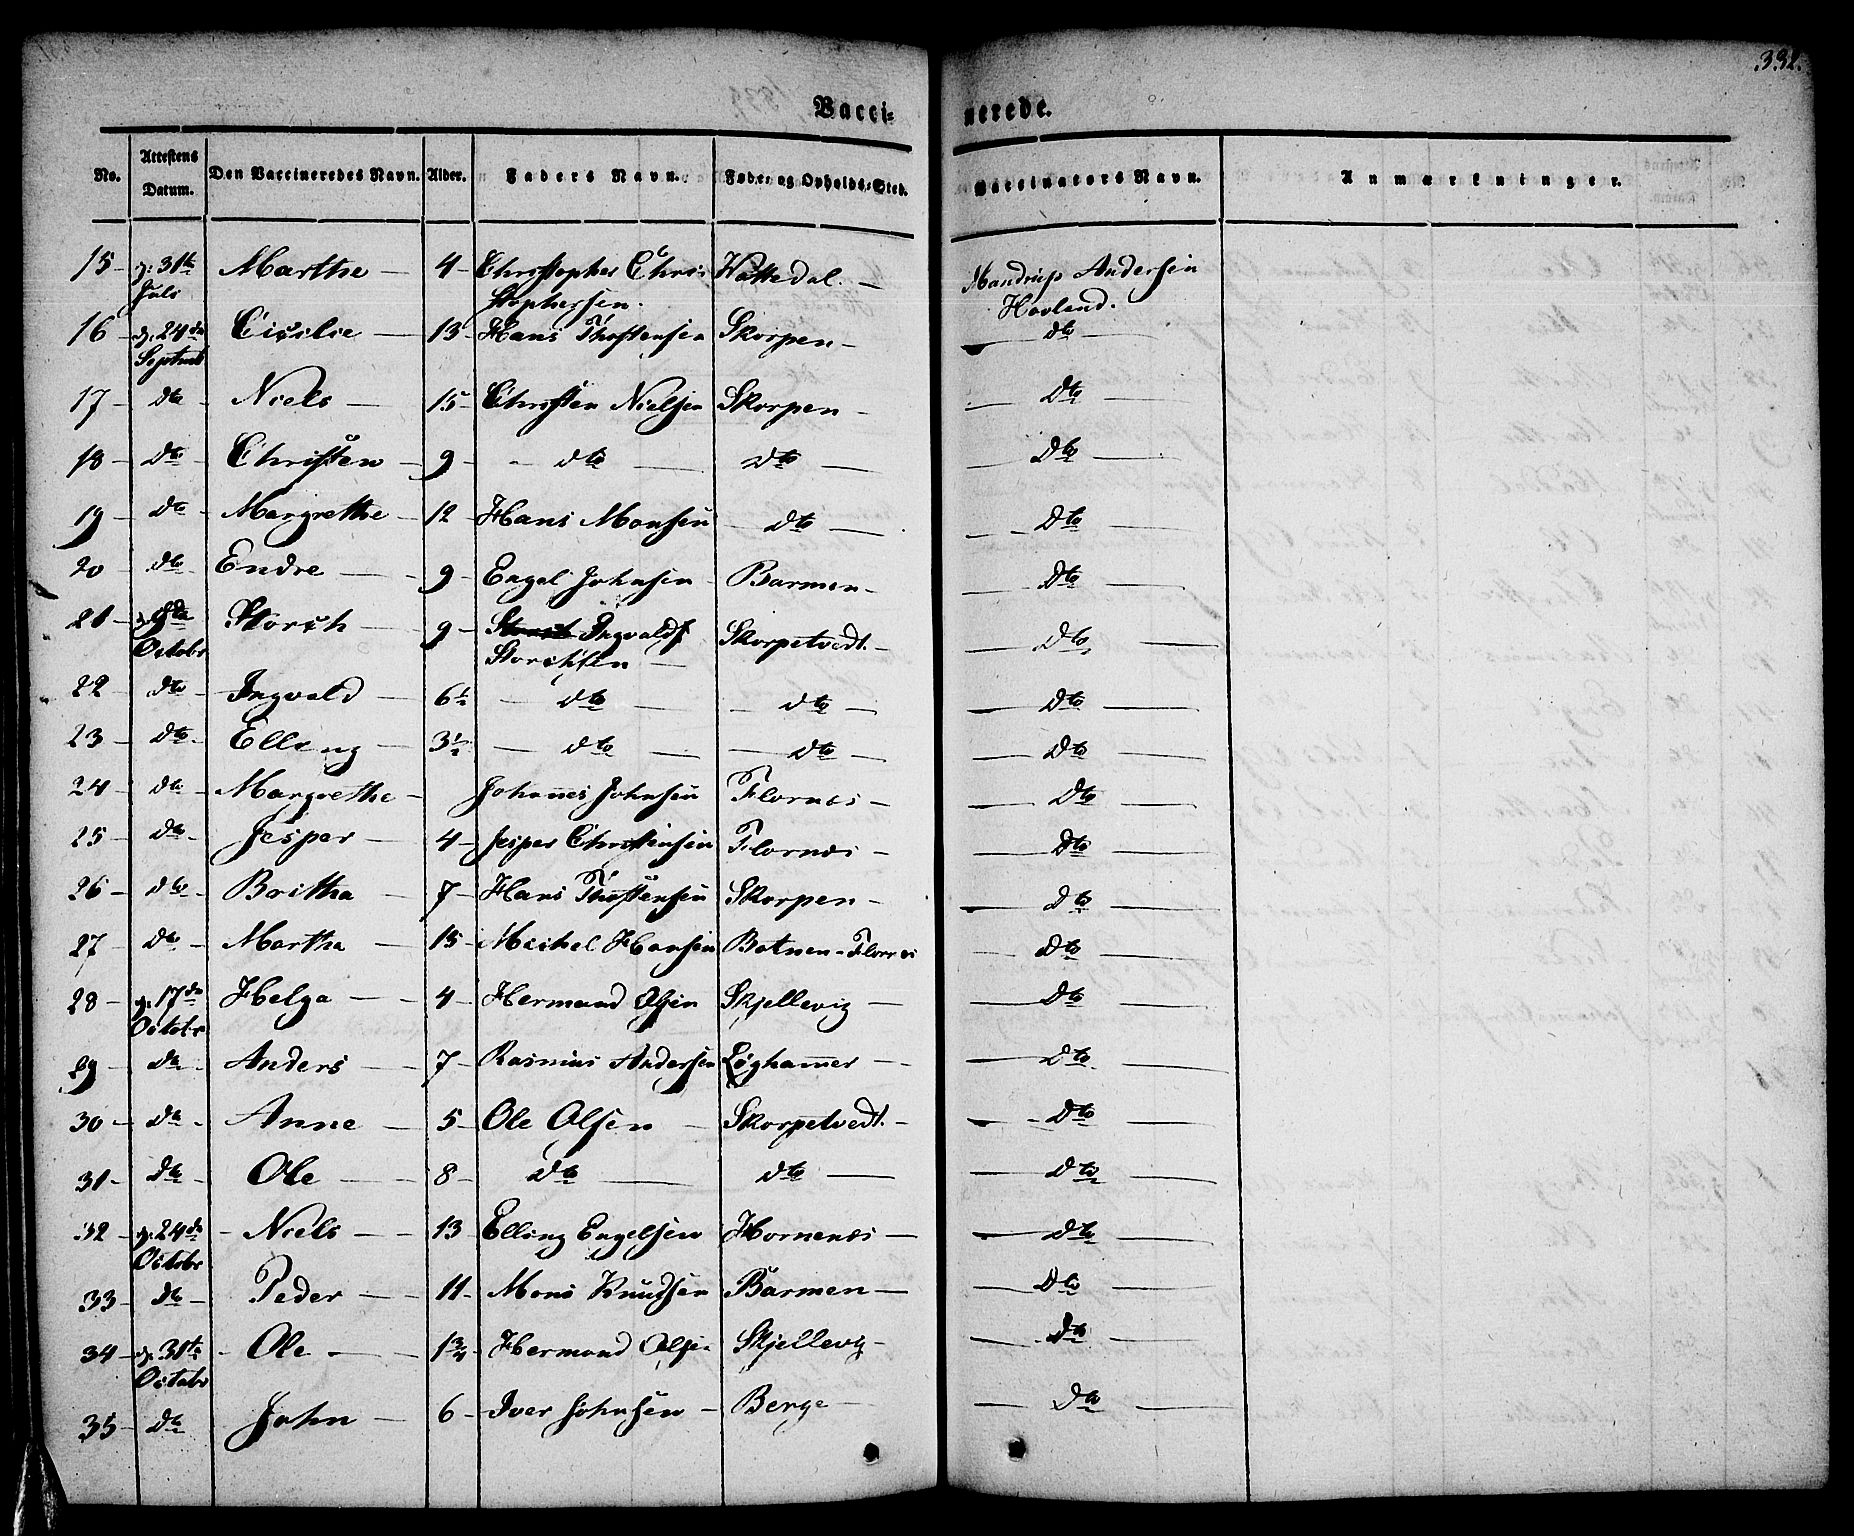 332.
Vacci- nerede.
No. Attestens Datum. Den Vaccineredes Navn. Alder. Faders Navn. Føde- og Opholds-Sted. Vaccinateurs Navn. Anmærkninger.
15 - d: 31te Juli Marthe - 4 - Christopher Christophersen. Wattedal. - Mandrup Andersen Hovland.
16 - d: 24de Septemb Cicilie - 13 - Hans Thostensen Skorpen - dto
17 - dto - Niels - 15 - Christen Nielsen Skorpen - Dto
18 - Dto - Christen - 9 - dto - dto - Dto
19 - dto - Margrethe - 12 - Hans Monsen - dto - Dto
20 - dto - Endre - 9 - Engel Johnsen - Barmen - Dto
21 - d: 8de Octobr Storch - 9 - Ingvald Storchsen - Skorpetvedt. - Dto
22 - dto - Ingvald - 6½ - dto - dto - Dto
23 - dto - Elling - 3½ - dto - dto - Dto
24 - dto - Margrethe - Johannes Johnsen Flornæs - Dto
25 - dto - Jesper - 4 - Jesper Christensen Flornæs - Dto
26 - dto - Britha - 7 - Hans Thostensen Skorpen - Dto
27 - dto - Martha - 15 - Michel Hansen Botnen - Flornæs Dto
28 - d: 17de Octobr Helga - 4 - Hermand Olsen Skjellevig - Dto
29 - Dto - Anders - 7 - Rasmus Andersen Løghammer - Dto
30 - Dto - Anne - 5 - Ole Olsen - Skorpetvedt. - Dto
31 - Dto - Ole - 8 - dto - dto - Dto
32 - d: 24de Octobr - Niels - 13 Elling Engelsen Hornenæs - Dto
33 - Dto - Peder - 11 - Mons Knudsen Barmen - Dto
34 - d: 31te Octobr - Ole - 1¾ - Hermand Olsen Skjellevig - Dto
35 - Dto John - 6 - Iver Johnsen - Berge - Dto